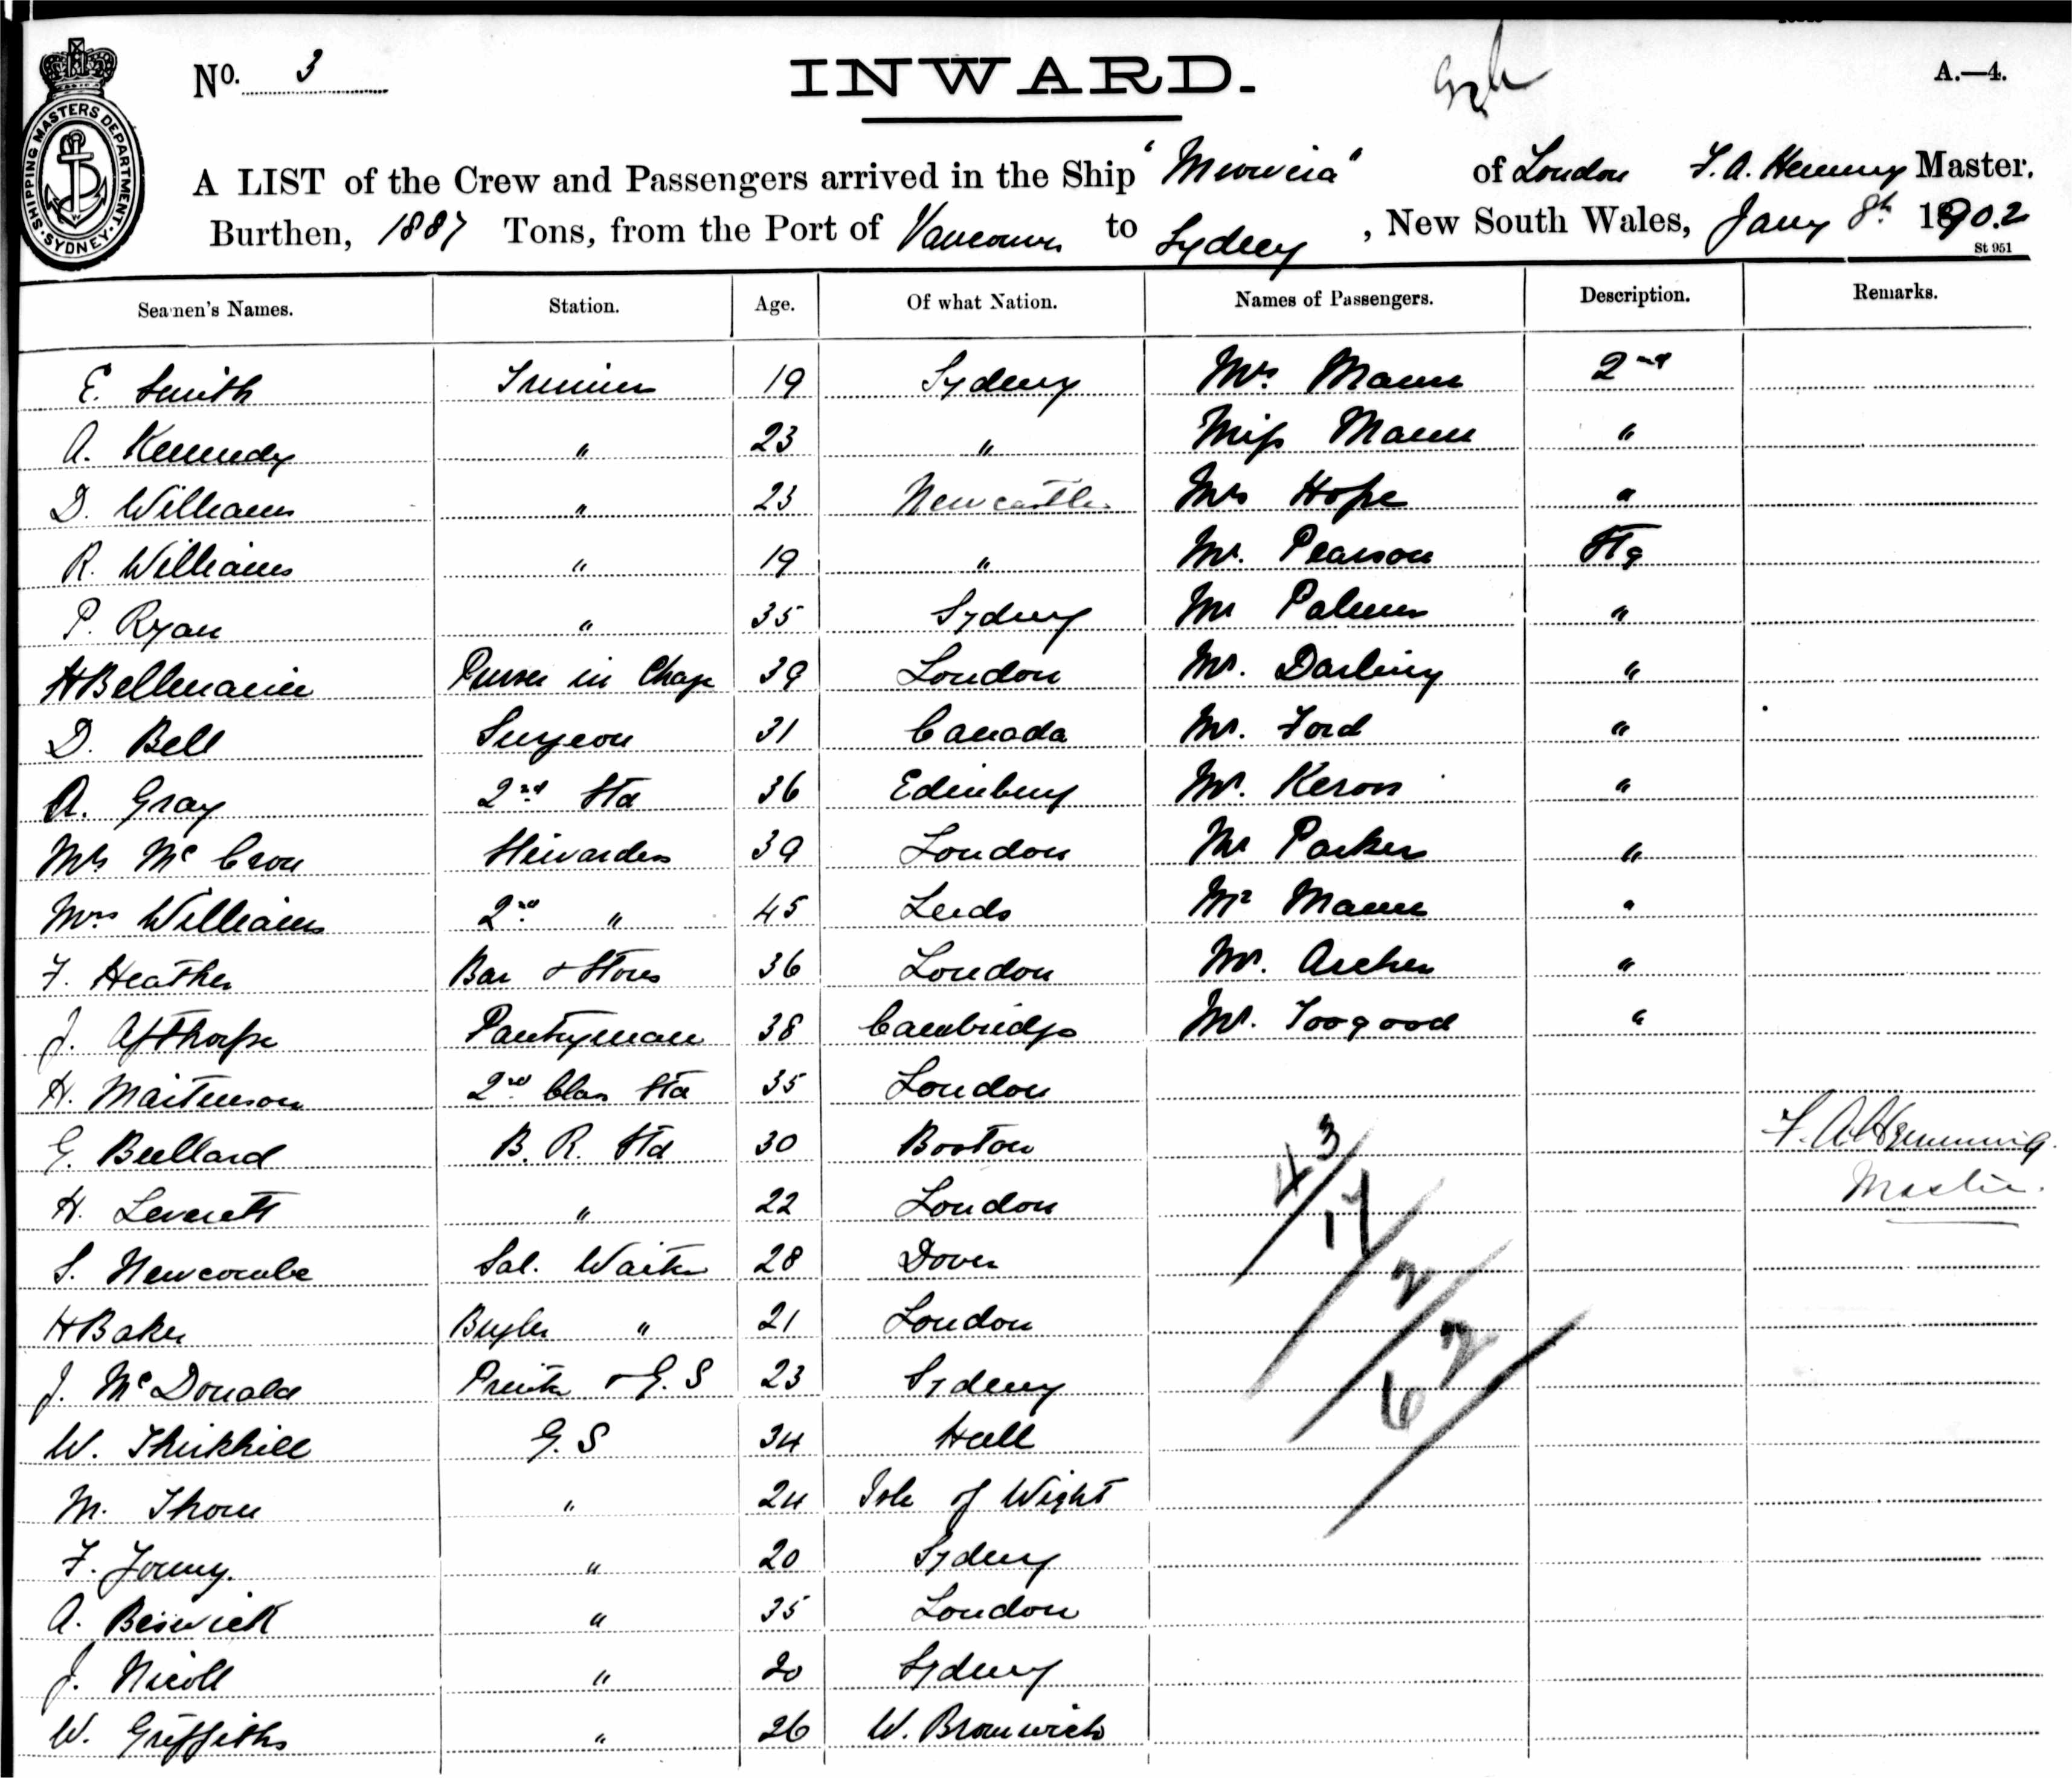 No. 3 INWARD. A.—4.
SHIPPING MASTERS DEPARTMENT · SYDNEY ·
A LIST of the Crew and Passengers arrived in the Ship "Miowera" of London F. A. Hemming Master,
Burthen, 1887 Tons, from the Port of Vancouver to Sydney, New South Wales, Jany 8th 1902
St 951
Seamen's Names. Station. Age. Of what Nation. Names of Passengers. Description. Remarks.
E. Smith Trimmer 19 Sydney Mrs Mann 2nd
A. Kennedy " 23 " Miss Mann "
D. Williams " 23 Newcastle Mrs Hope "
R. Williams " 19 " Mr. Pearson Stg
P. Ryan " 35 Sydney Mr Palmer "
H Bellmaine Purser in Charge 39 London Mr. Darling "
D. Bell Surgeon 31 Canada Mr. Ford "
A. Gray 2nd Std 36 Edinburg Mr. Keron "
Mrs McCron Stewardess 39 London Mr Parker "
Mrs Williams 2nd " 45 Leeds Mr Mann "
F. Heather Bar & Stores 36 London Mr. Archer "
J. Apthorpe Pantryman 38 Cambridge Mr. Toogood "
H. Martinson 2nd Class Std 35 London
G. Bullard B. R. Std 30 Boston F. A. Hemming.
H. Leverett " 22 London Master.
S. Newcombe Sal. Waiter 28 Dover
H Baker Bugler " 21 London
J. McDonald Printer & G. S 23 Sydney
W. Thirkhill G. S 34 Hull
M. Thom " 24 Isle of Wight
F. Young. " 20 Sydney
A. Beswick " 35 London
J. Nicoll " 20 Sydney
W. Griffiths " 26 W. Bromwich
43/
17/
2/
62/